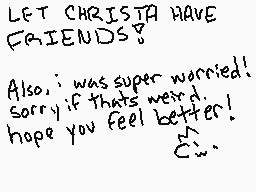 LET CHRISTA HAVE
FRIENDS!
Also, i was super worried!
sorry if thats weird.
hope you feel better!